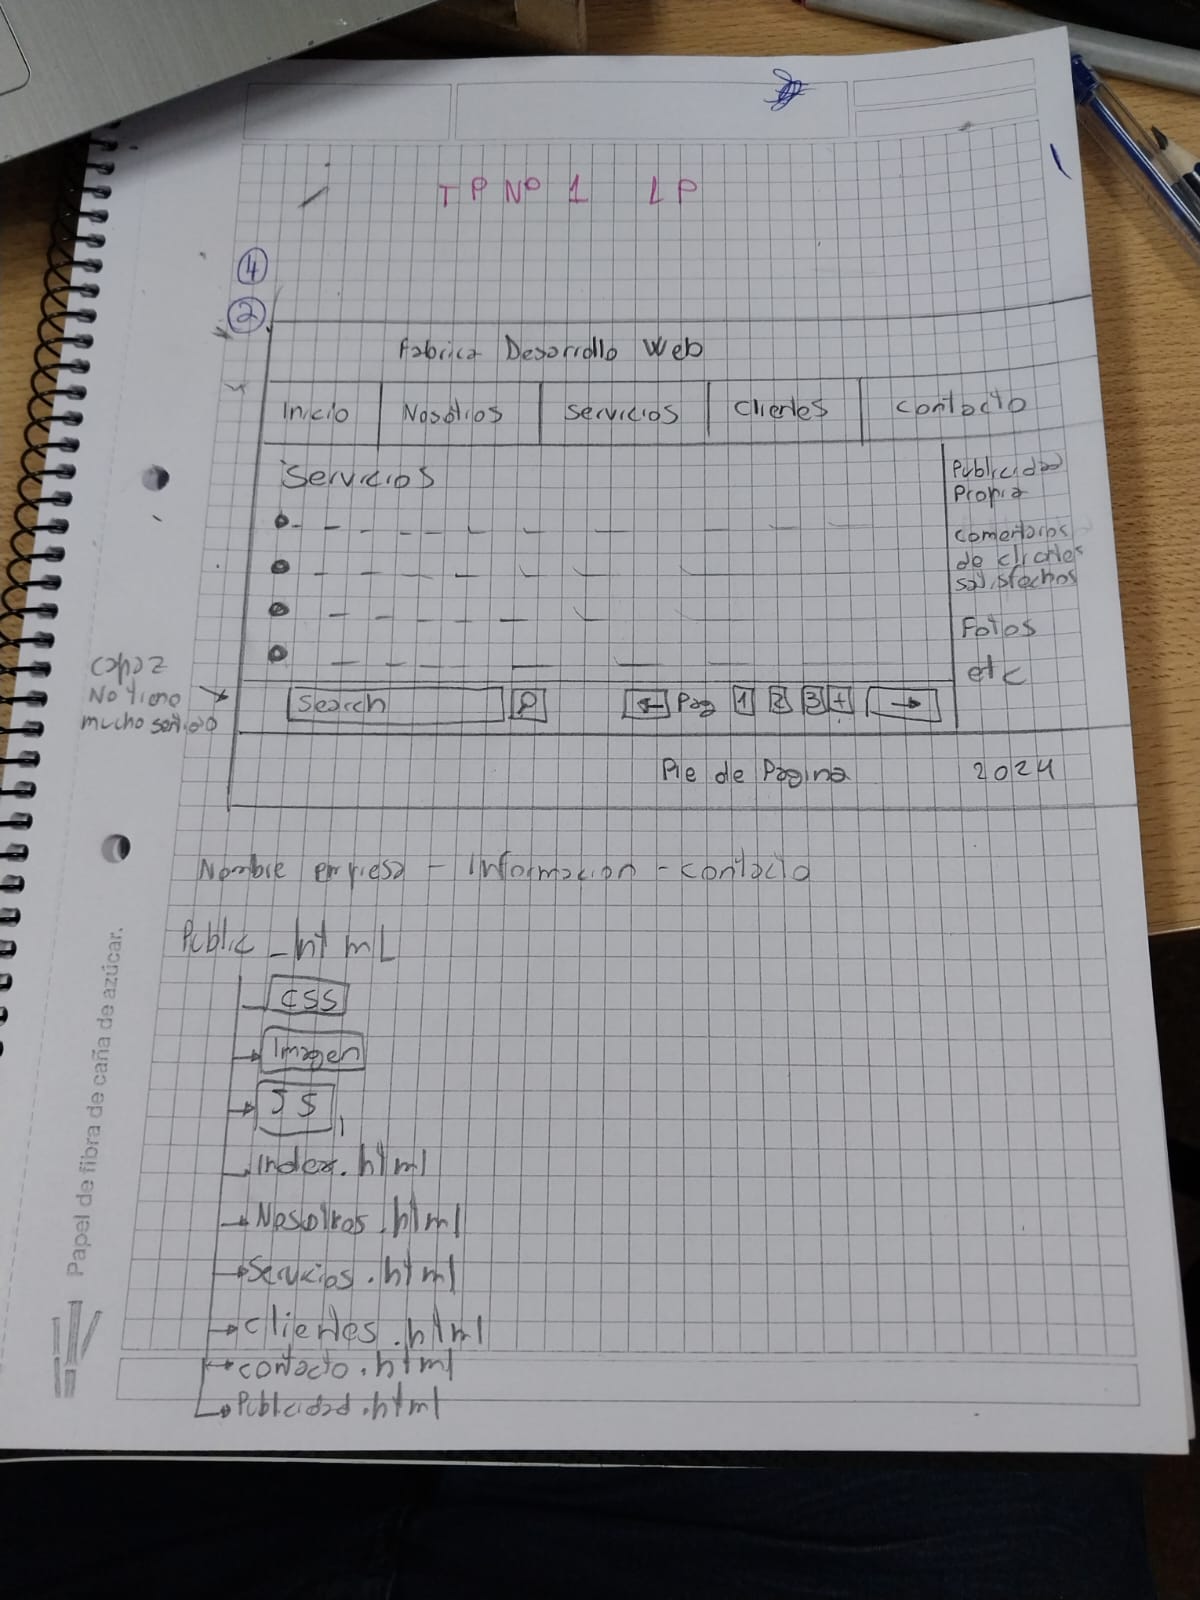 TP Nº 1 LP
4
2
Fabrica Desarrollo Web
Inicio Nosotros Servicios Clientes Contacto
Servicios
Publicidad
Propia
comentarios
de clientes
satisfechos
Fotos
etc
capaz
No tiene
mucho sentido
Search
← Pag 1 2 3 + →
Pie de Pagina 2024
Nombre empresa - Informacion - contacto
Public_html
CSS
Imagen
JS
Index.html
Nosotros.html
Servicios.html
Clientes.html
contacto.html
Publicidad.html
Papel de fibra de caña de azúcar.